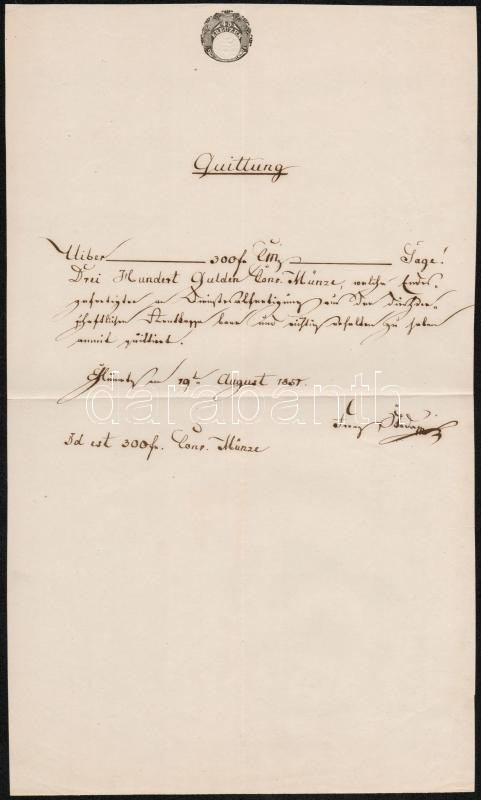 Quittung
Uiber 300 fr. CMz Sage!
Drei Hundert Gulden Conv. Münze, welche Endes-
gefertigter als Dienstesabfertigung aus der
herrschaftlichen Rentkasse baar und richtig erhalten zu haben
anmit quittiert.
am 19ten August 1851.
Id est 300 fr. Conv. Münze
darabanth